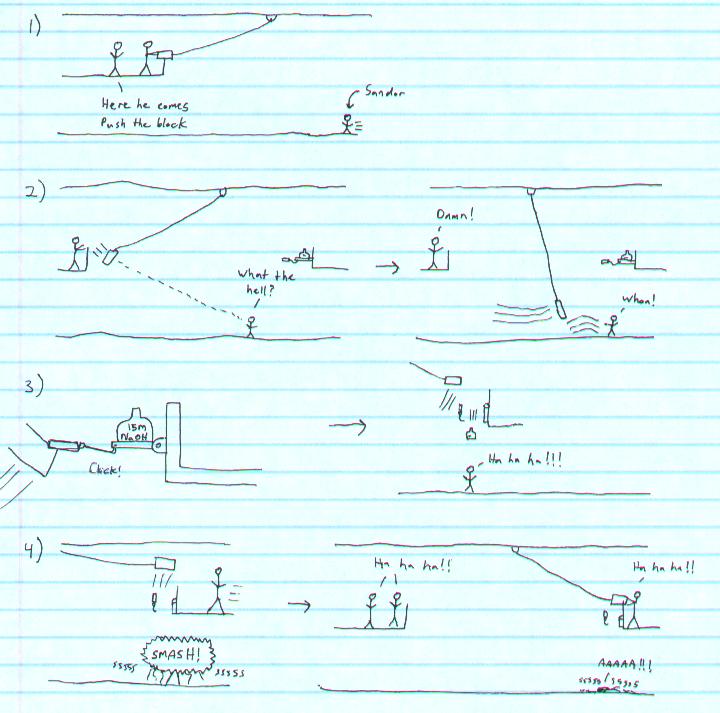 1)
Sandor
Here he comes
Push the block
2)
Damn!
What the
hell?
Whoa!
3)
15m
NaOH
Click!
Ha ha ha!!!
4)
Ha ha ha!!
Ha ha ha!!
SMASH!
sssss
sssss
AAAAA!!!
sssss/sssss